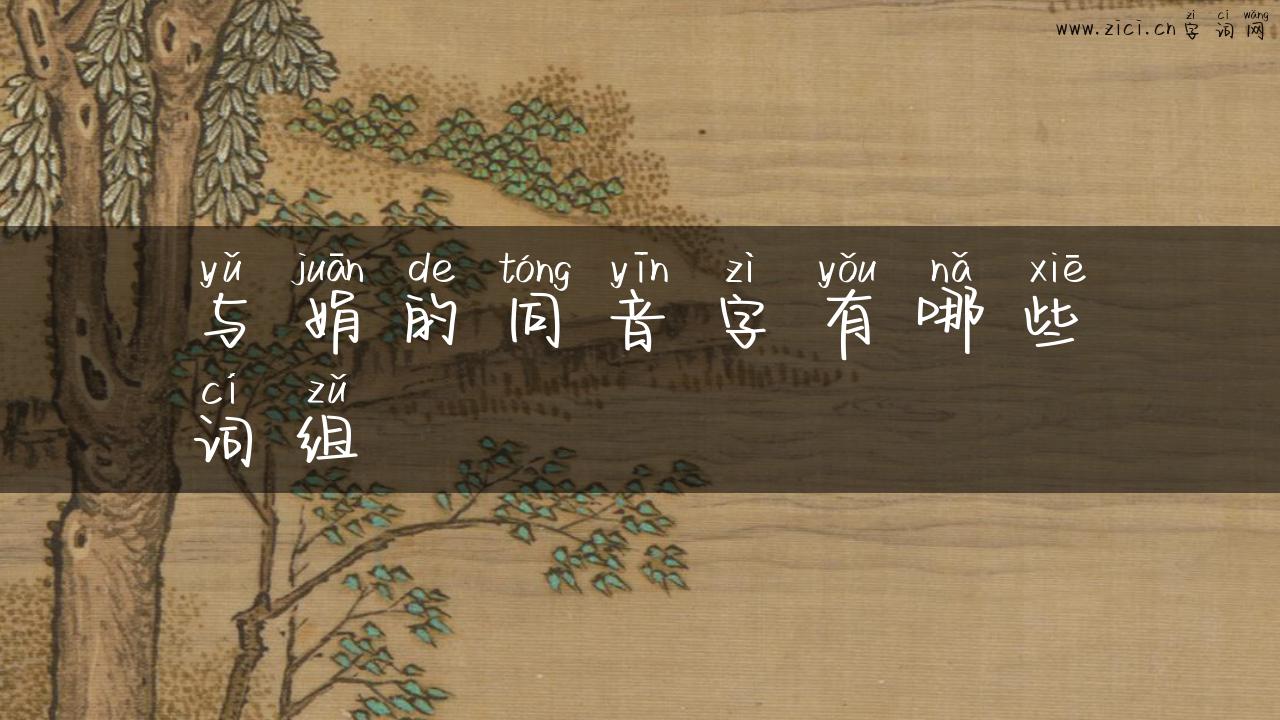 zì cí wǎng
www.zici.cn 字词网
yǔ juān de tóng yīn zì yǒu nǎ xiē
与娟的同音字有哪些
cí zǔ
词组